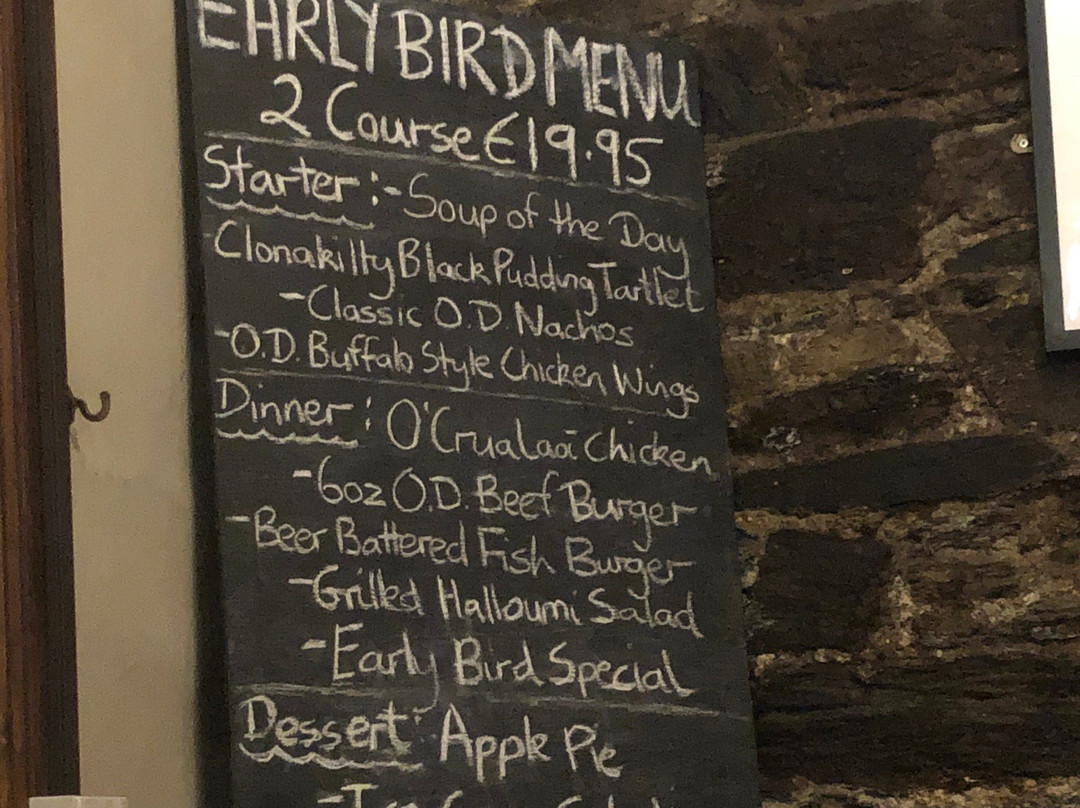 EARLY BIRD MENU
2 Course €19.95
Starter :- Soup of the Day
-Clonakilty Black Pudding Tartlet
-Classic O.D. Nachos
-O.D. Buffalo Style Chicken Wings
Dinner : O'Crualaoi Chicken
-6oz O.D. Beef Burger
-Beer Battered Fish Burger
-Grilled Halloumi Salad
-Early Bird Special
Dessert: Apple Pie